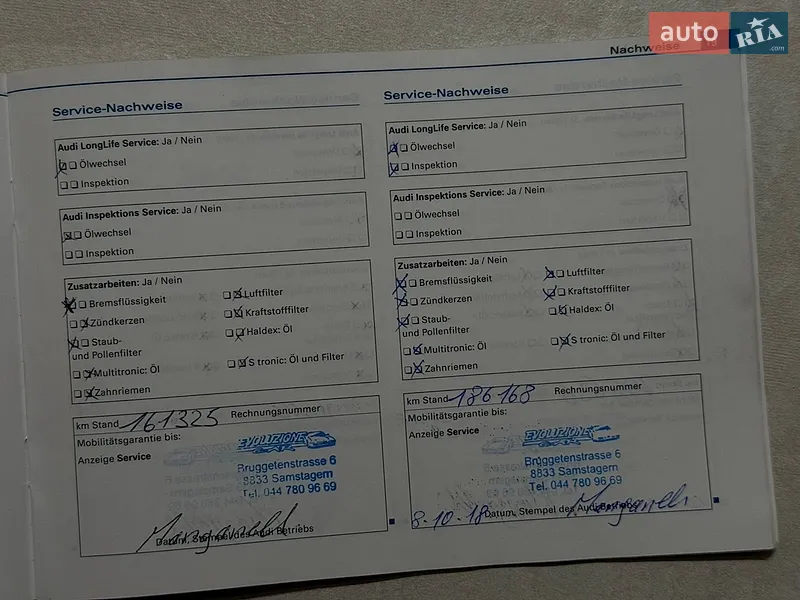 auto RIA .com
Nachweise
Service-Nachweise
Audi LongLife Service: Ja / Nein
Ölwechsel
Inspektion
Audi Inspektions Service: Ja / Nein
Ölwechsel
Inspektion
Zusatzarbeiten: Ja / Nein
Bremsflüssigkeit
Luftfilter
Zündkerzen
Kraftstofffilter
Staub-
und Pollenfilter
Haldex: Öl
Multitronic: Öl
S tronic: Öl und Filter
Zahnriemen
km Stand 161325 Rechnungsnummer
Mobilitätsgarantie bis:
Anzeige Service
EVOLUZIONE
Bruggetenstrasse 6
8833 Samstagern
Tel. 044 780 96 69
Datum, Stempel des Audi Betriebs
Service-Nachweise
Audi LongLife Service: Ja / Nein
Ölwechsel
Inspektion
Audi Inspektions Service: Ja / Nein
Ölwechsel
Inspektion
Zusatzarbeiten: Ja / Nein
Bremsflüssigkeit
Luftfilter
Zündkerzen
Kraftstofffilter
Staub-
und Pollenfilter
Haldex: Öl
Multitronic: Öl
S tronic: Öl und Filter
Zahnriemen
km Stand 186168 Rechnungsnummer
Mobilitätsgarantie bis:
Anzeige Service
EVOLUZIONE
Bruggetenstrasse 6
8833 Samstagern
Tel. 044 780 96 69
8-10-18 Datum, Stempel des Audi Betriebs